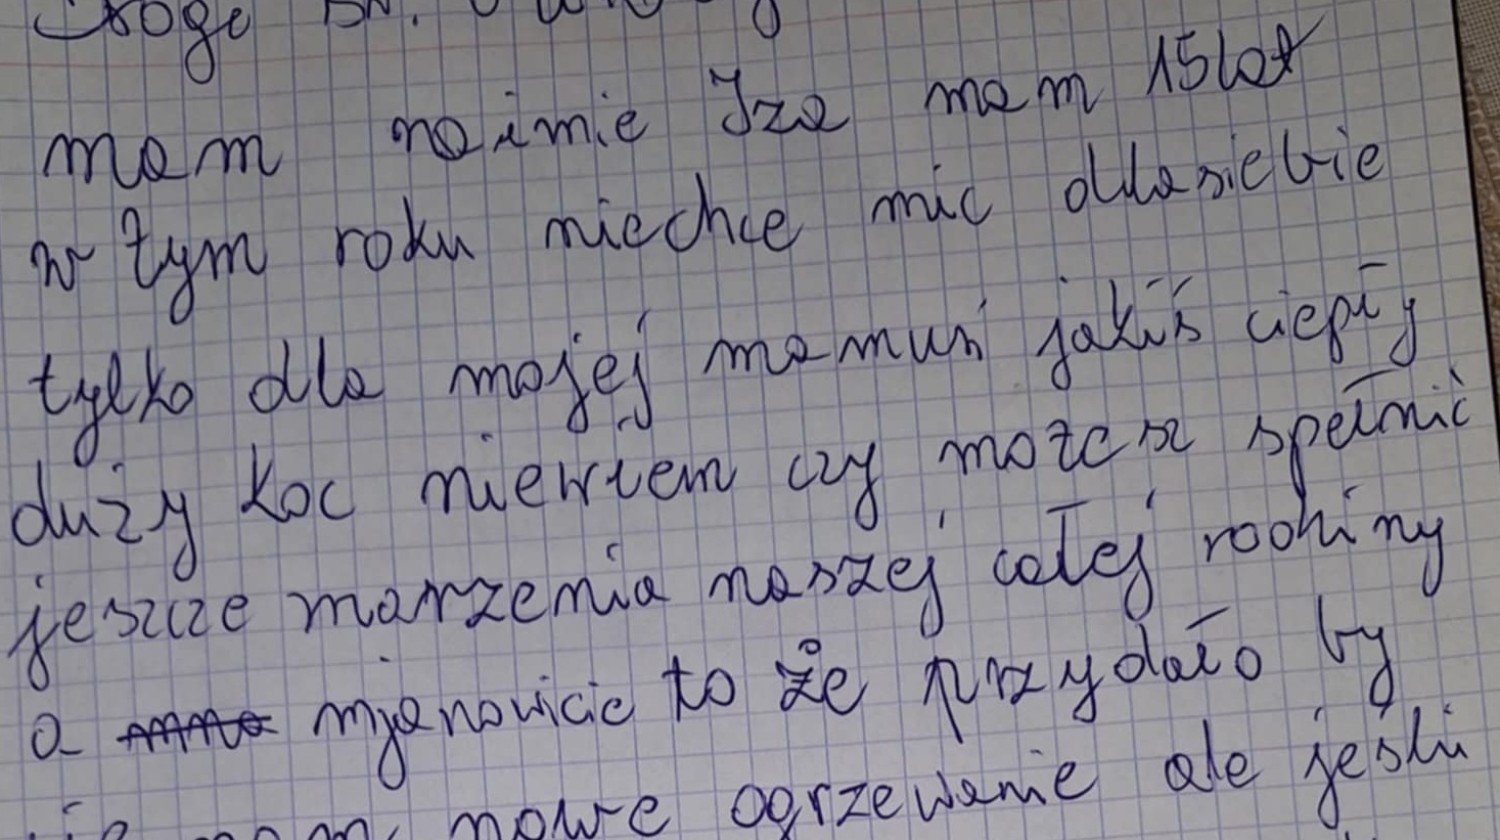 mam naimie Iza mam 15 lat
w tym roku niechce nic dlla siebie
tylko dla mojej mamusi jakiś ciepły
duży koc niewiem czy możesz spełnić
jeszcze marzenia naszej całej rodziny
a mjanowicie to że przydało by
nam nowe ogrzewanie ale jeśli